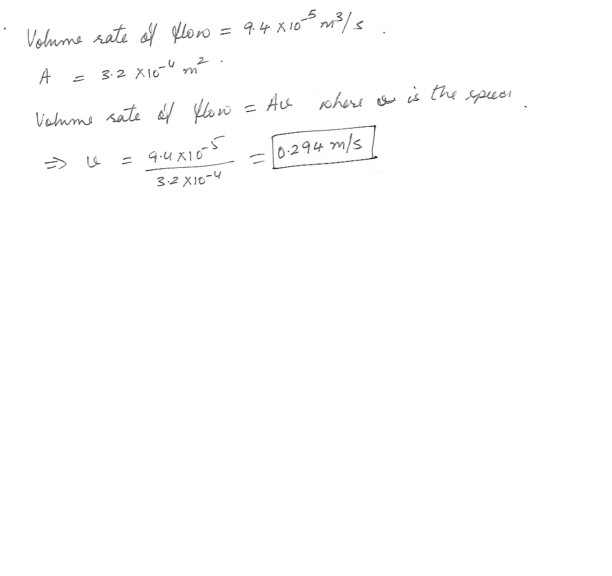 Volume rate of flow = 9.4 × 10⁻⁵ m³/s .
A = 3.2 × 10⁻⁴ m² .
Volume rate of flow = Av where v is the speed .
⇒ v = 9.4 × 10⁻⁵ / 3.2 × 10⁻⁴ = 0.294 m/s